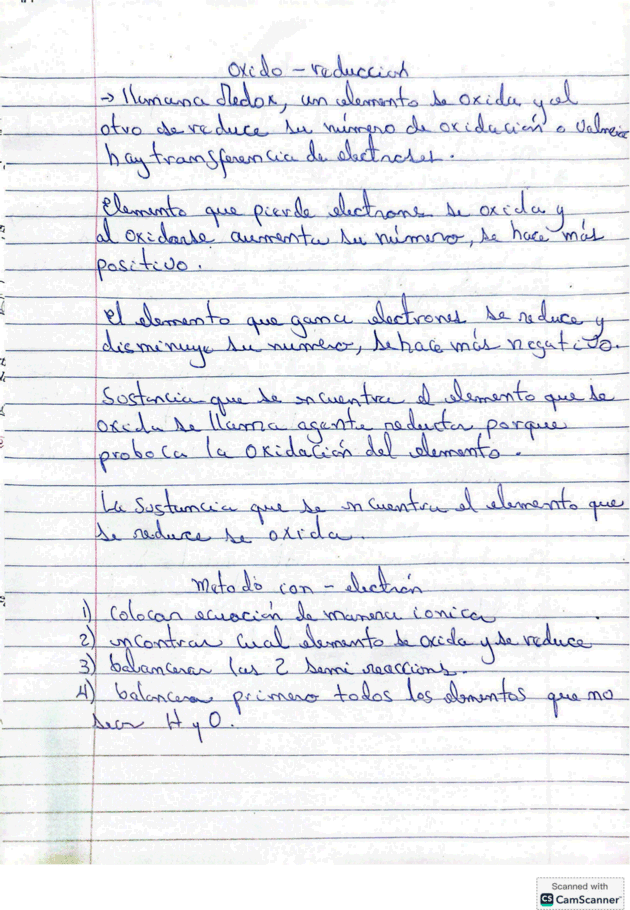 Oxido - reduccion
→ llamana Redox, un elemento se oxida y el
otro se reduce su número de oxidación o valencia
hay transferencia de electrones.
Elemento que pierde electrons se oxida y
al oxidarse aumenta su número, se hace más
positivo.
El elemento que gana electrones se reduce y
disminuye su numero, se hace más negativo.
Sustancia que se encuentra el elemento que se
oxida se llama agente reductor porque
proboca la oxidación del elemento.
La sustancia que se encuentra el elemento que
se reduce se oxida.
Metodo con - electrón
1) colocar ecuación de manera ionica
2) encontrar cual elemento se oxida y se reduce
3) balancear las 2 semi reaccions.
4) balancear primero todos los elementos que no
sean H y O.
Scanned with
CS CamScanner